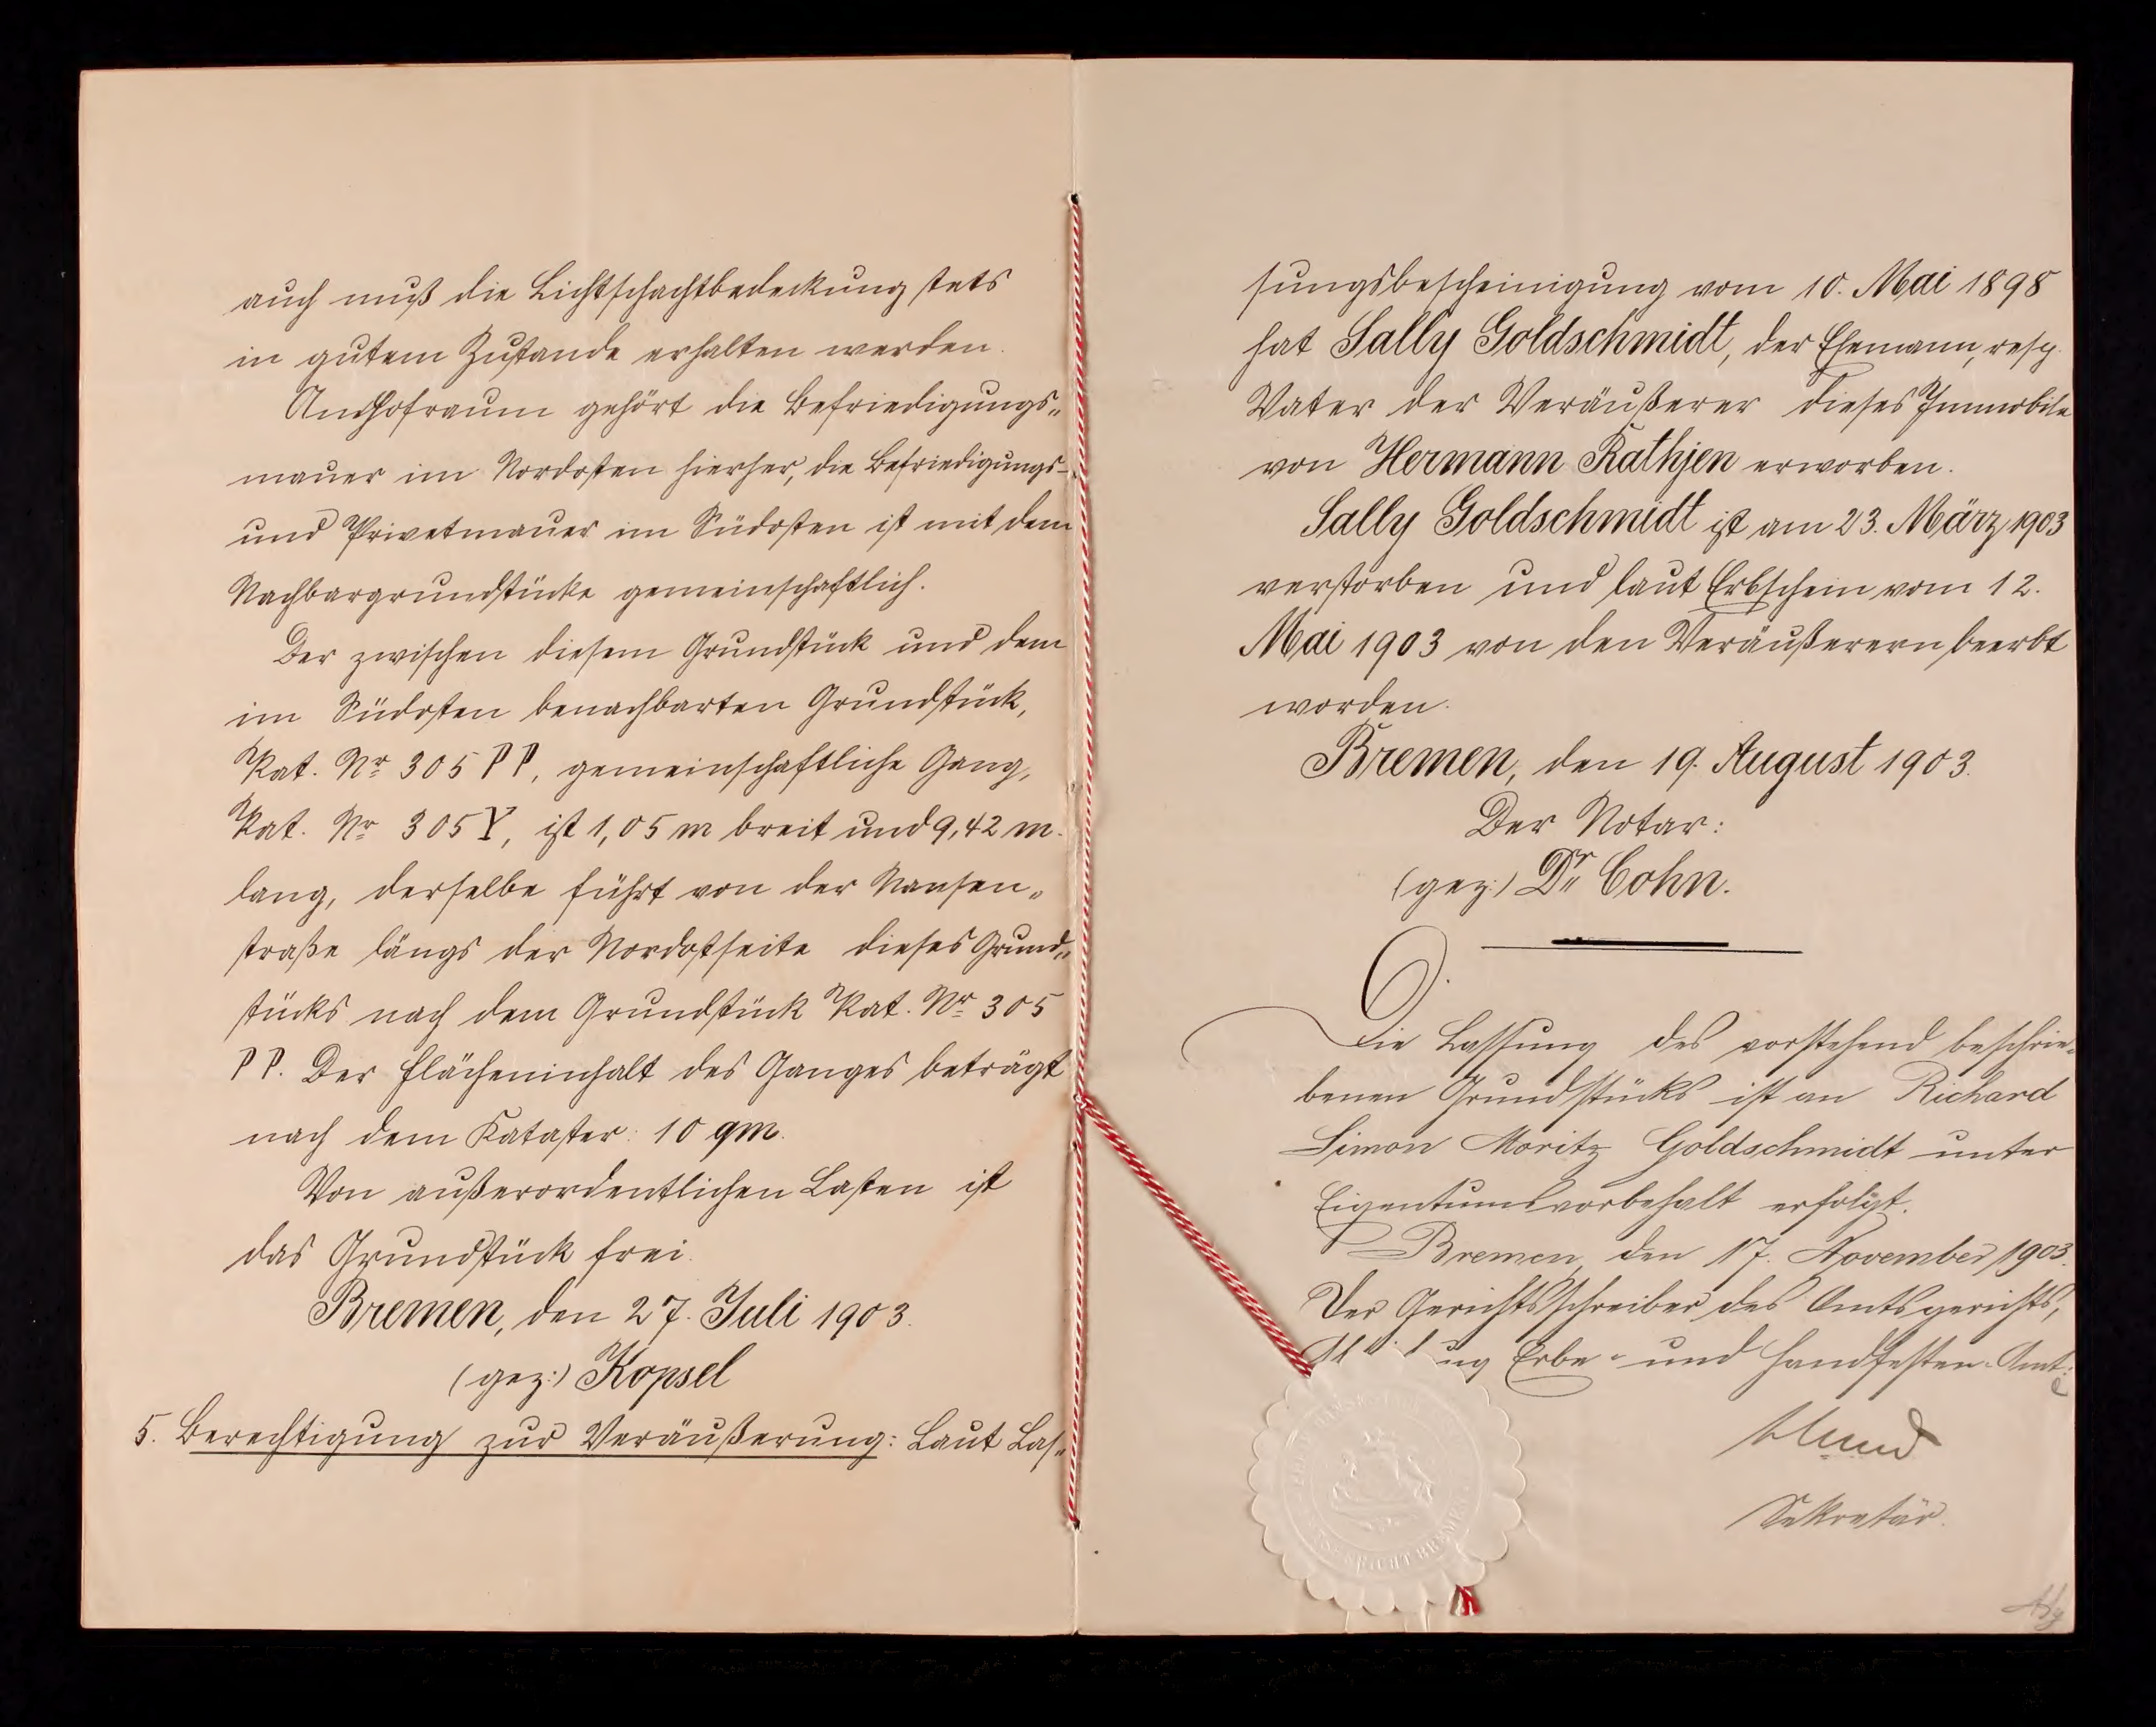 auch muß die Lichtschachtbedeckung stets
in gutem Zustande erhalten werden.
Am Hofraum gehört die Befriedigungs„
mauer im Nordosten hierher, die Befriedigungs-
und Privetmauer im Südosten ist mit dem
Nachbargrundstücke gemeinschaftlich.
Der zwischen diesem Grundstück und dem
im Südosten benachbarten Grundstück,
Kat. Nr 305 PP, gemeinschaftliche Gang,
Kat. Nr 305 Y, ist 1,05 m breit und 9,42 m.
lang, derselbe führt von der Nansen„
straße längs der Nordostseite dieses Grund„
stücks nach dem Grundstück Kat. Nr 305
PP. Der Flächeninhalt des Ganges beträgt
nach dem Kataster: 10 qm.
Von außerordentlichen Lasten ist
das Grundstück frei.
Bremen, den 27. Juli 1903.
(gez:) Kopsel
5. Berechtigung zur Veräußerung: Laut Las„
sungsbescheinigung vom 10. Mai 1898
hat Sally Goldschmidt, der Ehemann, resp.
Vater der Veräußerer dieses Immobile
von Hermann Rathjen erworben.
Sally Goldschmidt ist am 23. März 1903
verstorben und laut Erbschein vom 12.
Mai 1903 von den Veräußerern beerbt
worden.
Bremen, den 19. August 1903.
Der Notar:
(gez:) Dr Cohn.
Die Lassung des vorstehend beschrie-
benen Grundstücks ist an Richard
Simon Moritz Goldschmidt unter
Eigentumsvorbehalt erfolgt.
Bremen, den 17. November 1903.
Der Gerichtsschreiber des Amtsgerichts,
Erbe- und Handfesten-Amt:
Sekretär.